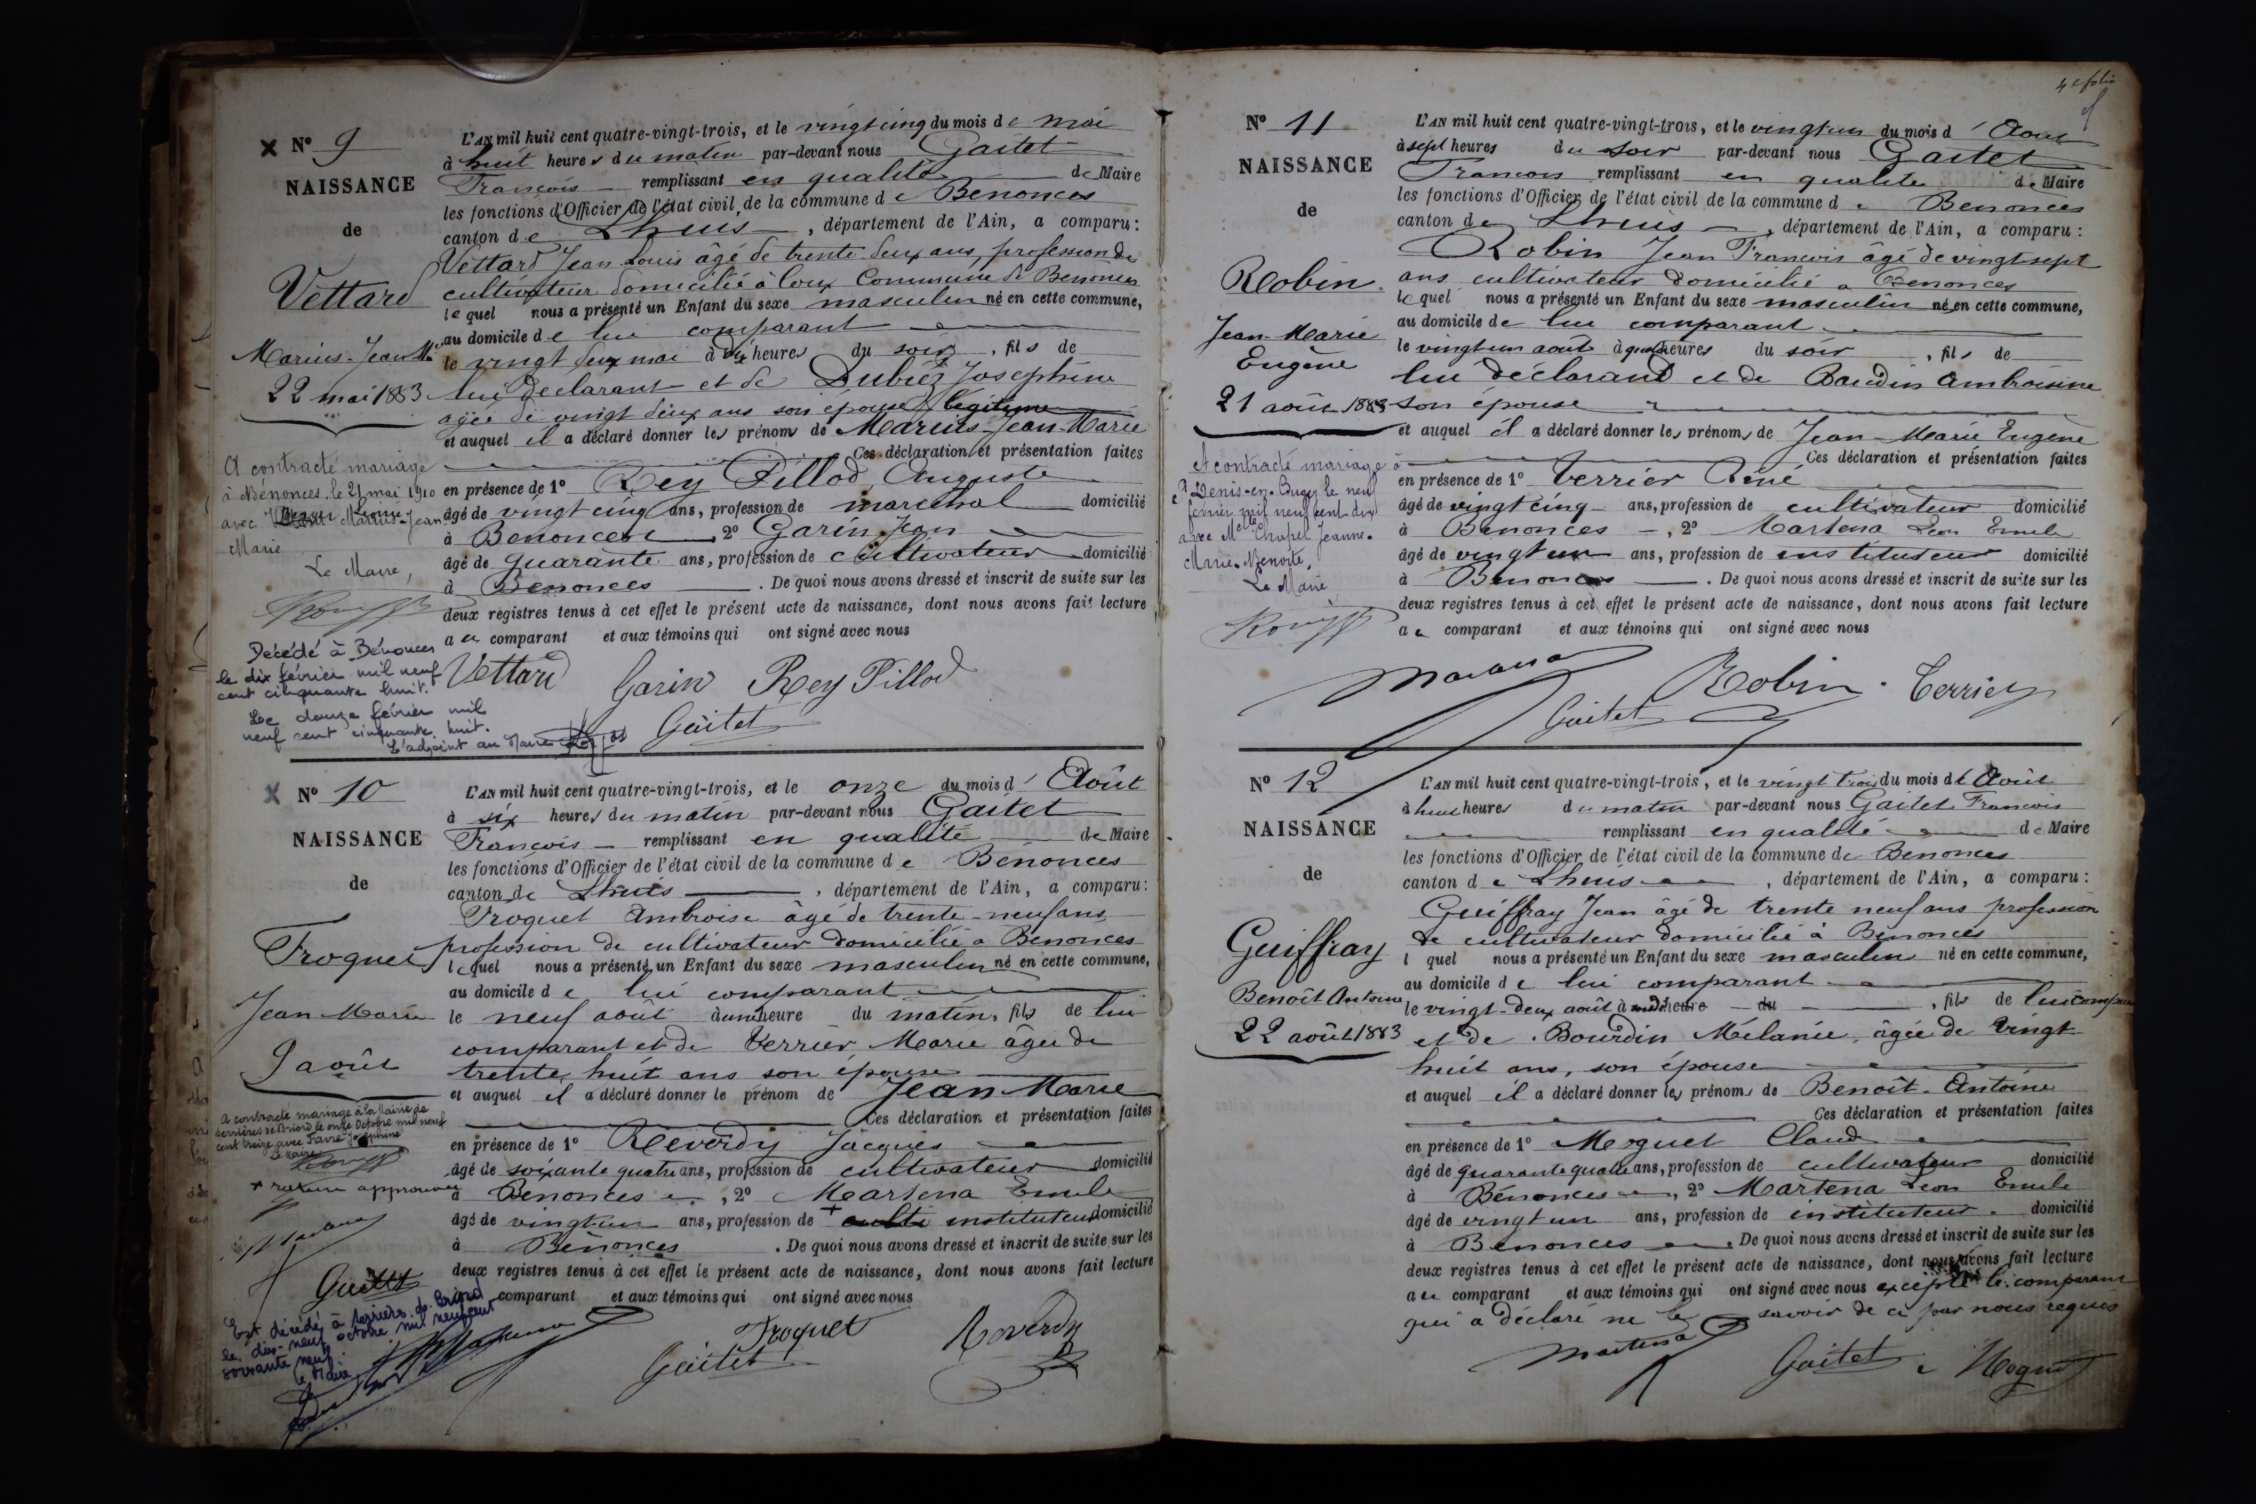 × N° 9
NAISSANCE
de
Vettard
Marius-Jean Mie
22 mai 1883
A contracté mariage
à Bénonces le 21 mai 1910
avec
Marie
Le Maire,
Décédé à Bénonces
le dix février mil neuf
cent cinquante huit.
Le douze février mil
neuf cent cinquante huit.
L'adjoint au Maire
L'AN mil huit cent quatre-vingt-trois, et le vingt cinq du mois de mai
à huit heures du matin par-devant nous Gaitet
François remplissant en qualité de Maire
les fonctions d'Officier de l'état civil de la commune de Benonces
canton de Lhuis, département de l'Ain, a comparu:
Vettard Jean Louis âgé de trente deux ans, profession de
cultivateur domicilié à Commune de Benonces
lequel nous a présenté un Enfant du sexe masculin né en cette commune,
au domicile de lui comparant
le vingt deux mai à heures du soir, fils de
lui déclarant et de Dubiez Joséphine
agée de vingt deux ans son épouse légitime
et auquel il a déclaré donner les prénoms de Marius-Jean-Marie
Ces déclaration et présentation faites
en présence de 1° Rey Pillod Auguste
âgé de vingt cinq ans, profession de marechal domicilié
à Benonces 2° Garin Jean
âgé de quarante ans, profession de cultivateur domicilié
à Benonces. De quoi nous avons dressé et inscrit de suite sur les
deux registres tenus à cet effet le présent acte de naissance, dont nous avons fait lecture
au comparant et aux témoins qui ont signé avec nous
Vettard Garin Rey Pillod
Gaitet
× N° 10
NAISSANCE
de
Troquet
Jean Marie
9 août
A contracté mariage à la Mairie de
Serrières de Briord le onze Octobre mil neuf
cent treize avec Favre Joséphine
Le Maire
+ rature approuvée
Gaitet
Est décédé à Serrières de Briord
le dix-neuf octobre mil neuf cent
soixante neuf
le Maire
L'AN mil huit cent quatre-vingt-trois, et le onze du mois d'Août
à six heures du matin par-devant nous Gaitet
François remplissant en qualité de Maire
les fonctions d'Officier de l'état civil de la commune de Bénonces
canton de Lhuis, département de l'Ain, a comparu:
Troquet Ambroise âgé de trente-neuf ans
profession de cultivateur domicilié à Benonces
lequel nous a présenté un Enfant du sexe masculin né en cette commune,
au domicile de lui comparant
le neuf août à une heure du matin, fils de lui
comparant et de Verrier Marie âgée de
trente huit ans son épouse
et auquel il a déclaré donner le prénom de Jean Marie
Ces déclaration et présentation faites
en présence de 1° Reverdy Jacques
âgé de soixante quatre ans, profession de cultivateur domicilié
à Benonces, 2° Martena Emile
âgé de vingt un ans, profession de + culti instituteur domicilié
à Bénonces. De quoi nous avons dressé et inscrit de suite sur les
deux registres tenus à cet effet le présent acte de naissance, dont nous avons fait lecture
comparant et aux témoins qui ont signé avec nous
Troquet Reverdy
Gaitet
4e folio
N° 11
NAISSANCE
de
Robin
Jean-Marie
Eugène
21 août 1883
A contracté mariage à
St Denis-en-Bugey le neuf
février mil neuf cent dix
avec Melle Chapel Jeanne-
Marie-Benoite.
Le Maire
L'AN mil huit cent quatre-vingt-trois, et le vingt un du mois d'Août
à sept heures du soir par-devant nous Gaitet
François remplissant en qualité de Maire
les fonctions d'Officier de l'état civil de la commune de Benonces
canton de Lhuis, département de l'Ain, a comparu:
Robin Jean François âgé de vingt-sept
ans cultivateur domicilié à Benonces
lequel nous a présenté un Enfant du sexe masculin né en cette commune,
au domicile de lui comparant
le vingt un août à heures du soir, fils de
lui déclarant et de Baudin Ambroisine
son épouse
et auquel il a déclaré donner les prénoms de Jean-Marie Eugène
Ces déclaration et présentation faites
en présence de 1° Verrier Réné
âgé de vingt cinq ans, profession de cultivateur domicilié
à Benonces, 2° Martena Léon Emile
âgé de vingt un ans, profession de instituteur domicilié
à Benonces. De quoi nous avons dressé et inscrit de suite sur les
deux registres tenus à cet effet le présent acte de naissance, dont nous avons fait lecture
au comparant et aux témoins qui ont signé avec nous
Martena Robin Verrier
Gaitet
N° 12
NAISSANCE
de
Guiffray
Benoît Antoine
22 août 1883
L'AN mil huit cent quatre-vingt-trois, et le vingt trois du mois d'Août
à huit heures du matin par-devant nous Gaitet François
remplissant en qualité de Maire
les fonctions d'Officier de l'état civil de la commune de Benonces
canton de Lhuis, département de l'Ain, a comparu:
Guiffray Jean âgé de trente neuf ans profession
de cultivateur domicilié à Bénonces
l quel nous a présenté un Enfant du sexe masculin né en cette commune,
au domicile de lui comparant
le vingt-deux août à midi heure du, fils de lui comparant
et de Bourdin Mélanie, âgée de vingt
huit ans, son épouse
et auquel il a déclaré donner les prénoms de Benoît-Antoine
Ces déclaration et présentation faites
en présence de 1° Moguet Claude
âgé de quarante quatre ans, profession de cultivateur domicilié
à Bénonces, 2° Martena Léon Emile
âgé de vingt un ans, profession de instituteur domicilié
à Benonces. De quoi nous avons dressé et inscrit de suite sur les
deux registres tenus à cet effet le présent acte de naissance, dont nous avons fait lecture
au comparant et aux témoins qui ont signé avec nous excepté le comparant
qui a déclaré ne le savoir de ce par nous requis
Martena Gaitet Moguet